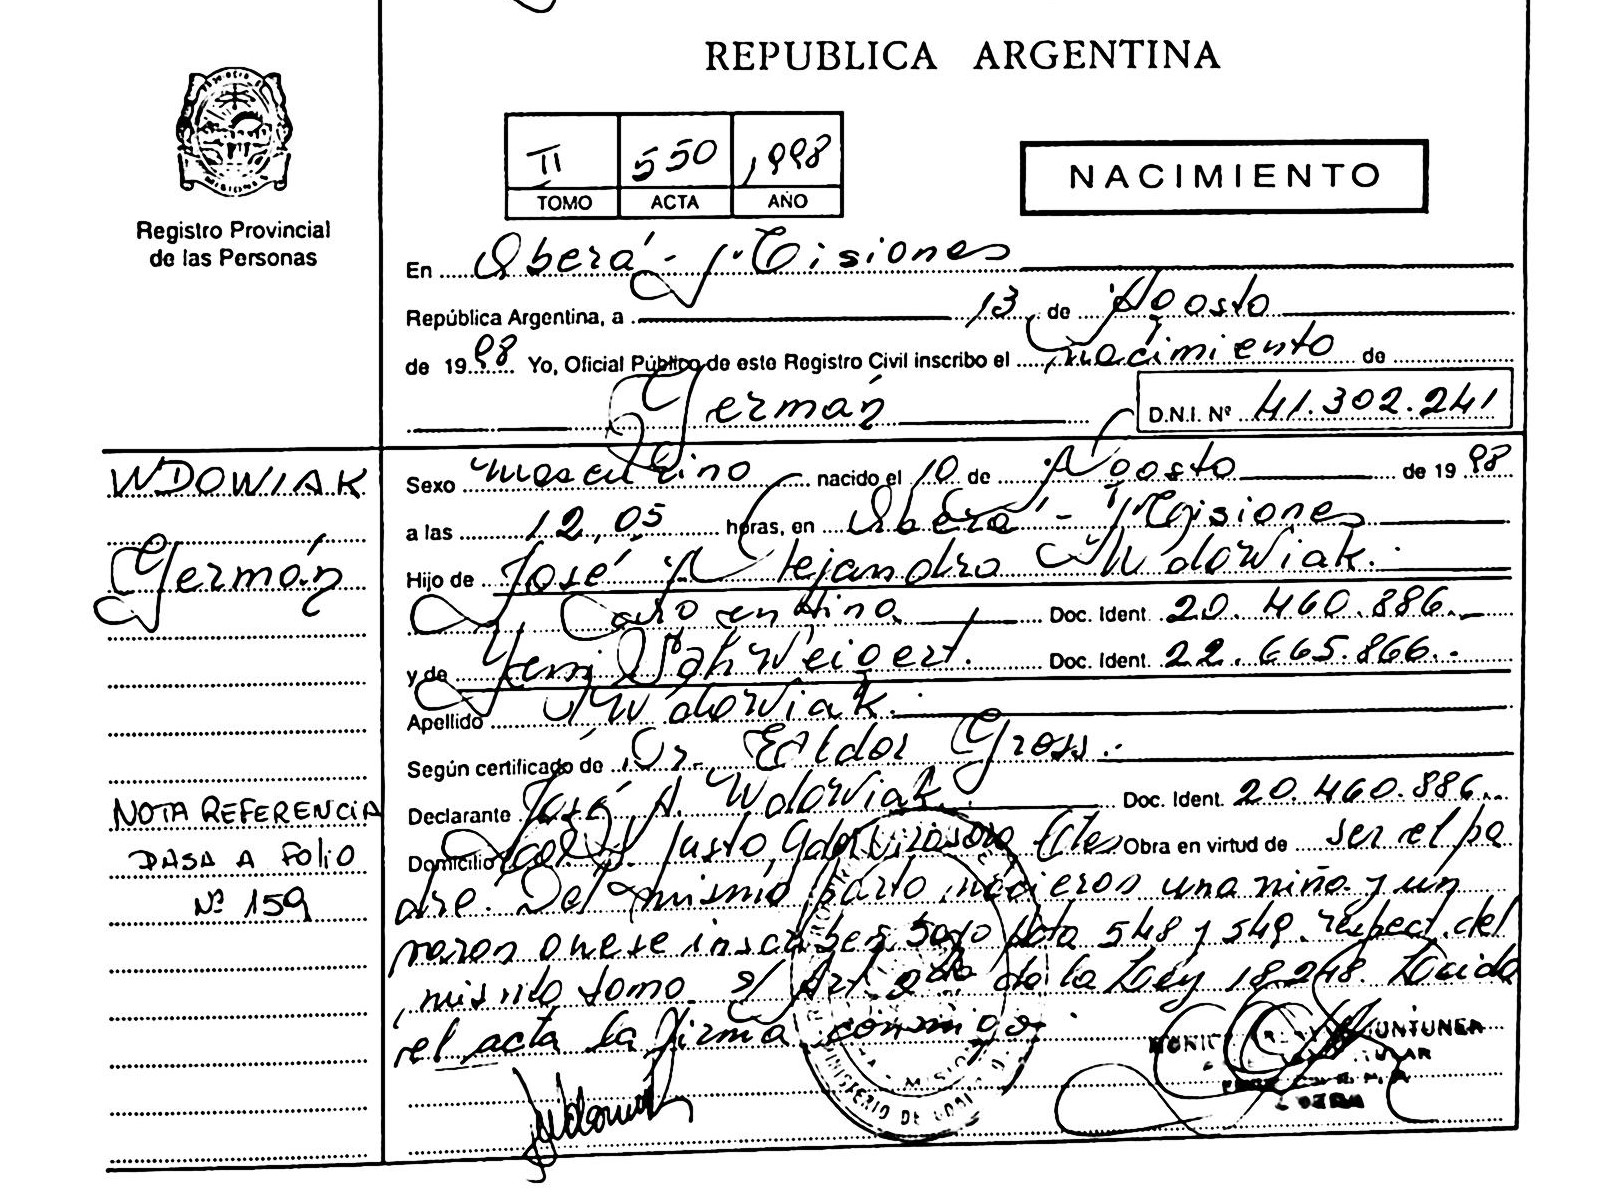 REPUBLICA ARGENTINA
II 550 1998
TOMO ACTA AÑO
NACIMIENTO
Registro Provincial
de las Personas
En Oberá - Misiones
República Argentina, a 13 de Agosto
de 1998 Yo, Oficial Público de este Registro Civil inscribo el nacimiento de
Germán D.N.I. Nº 41.302.241
WDOWIAK
Germán
Sexo masculino nacido el 10 de Agosto de 1998
a las 12,05 horas, en Oberá - Misiones
Hijo de José Alejandro Wdowiak.
argentino Doc. Ident. 20.460.886.
y de Doc. Ident. 22.665.866.
Apellido Wdowiak.
Según certificado de Dr. Eildor Gross.
Declarante José A. Wdowiak. Doc. Ident. 20.460.886.
Domicilio Justo Obra en virtud de ser el pa
dre. Del mismo parto nacieron una niña y un
varon que se inscriben bajo Acta 548 y 549. respect. del
mismo tomo. s/ Art. 2do de la Ley 18.248. Leida
el acta la firma conmigo.
NOTA REFERENCIA
PASA A FOLIO
Nº 159
MINISTERIO DE